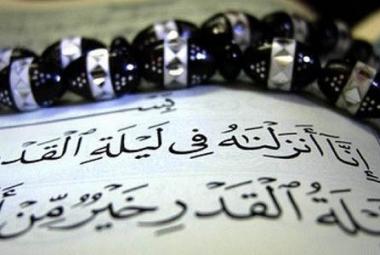 إِنَّا أَنزَلْنَاهُ فِي لَيْلَةِ الْقَدْ
لَيْلَةُ الْقَدْرِ خَيْرٌ مِّنْ أَ